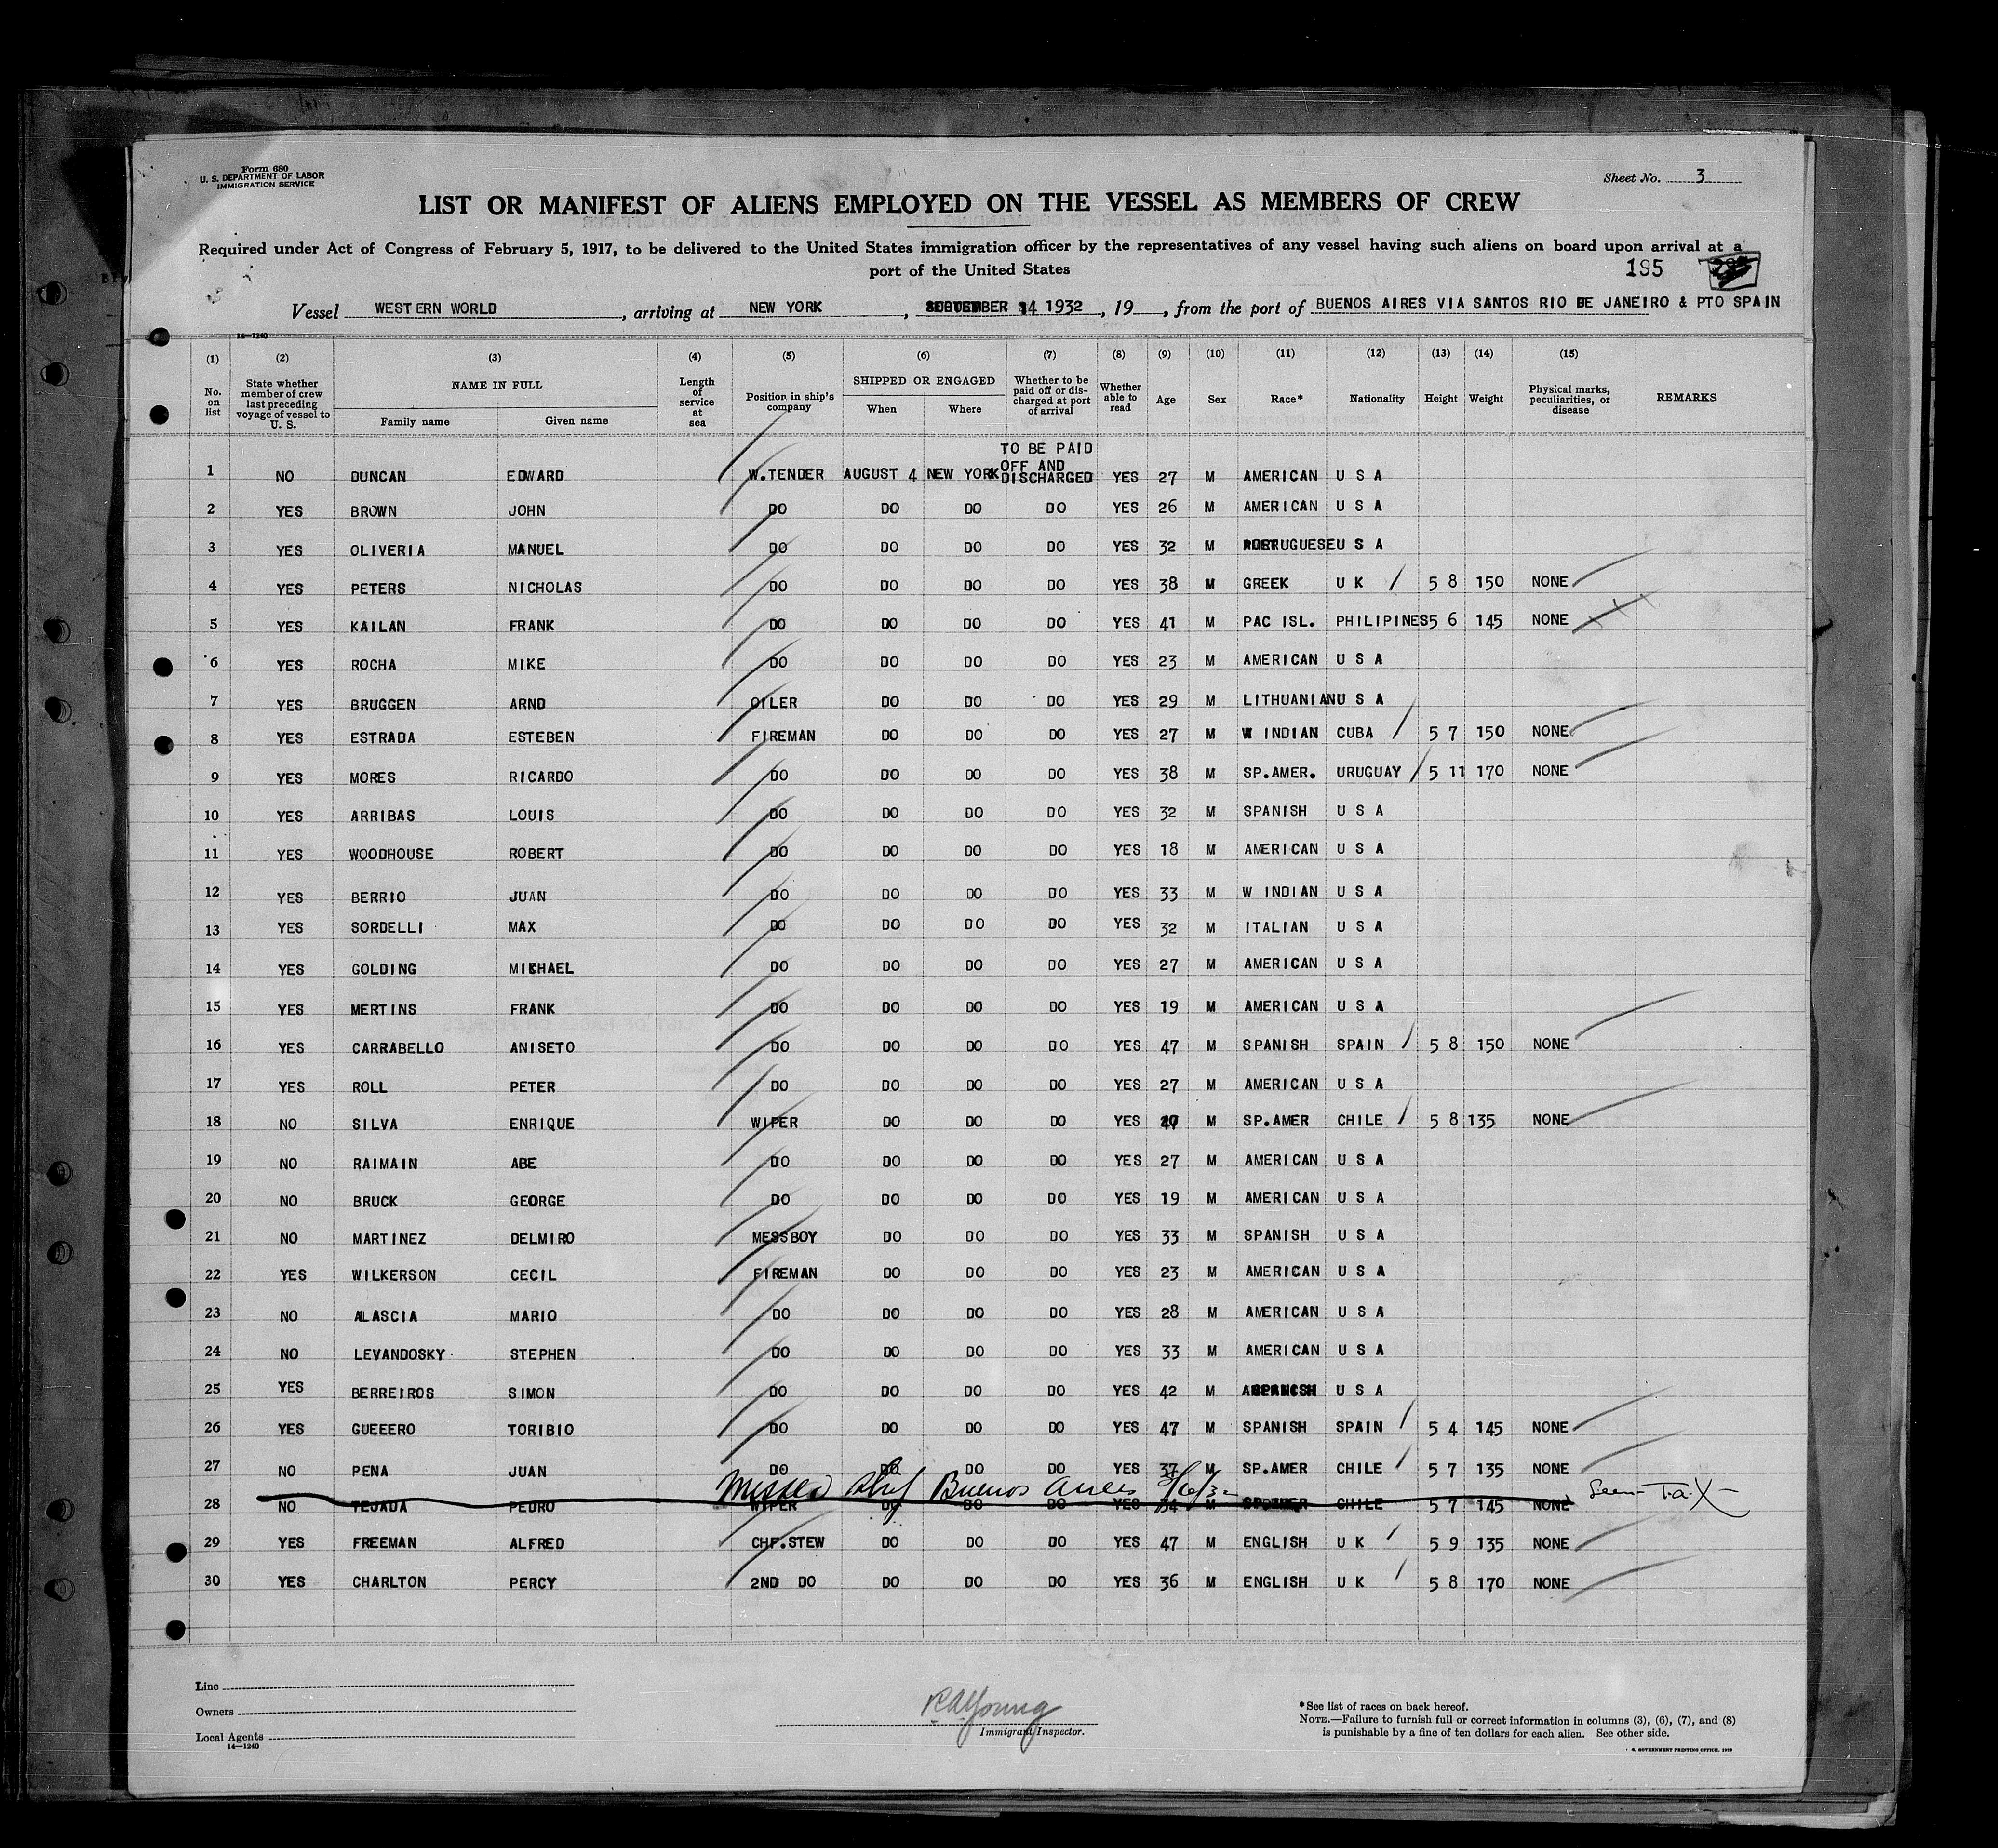 Form 680
U. S. DEPARTMENT OF LABOR
IMMIGRATION SERVICE
Sheet No. 3
LIST OR MANIFEST OF ALIENS EMPLOYED ON THE VESSEL AS MEMBERS OF CREW
Required under Act of Congress of February 5, 1917, to be delivered to the United States immigration officer by the representatives of any vessel having such aliens on board upon arrival at a
port of the United States
195
Vessel WESTERN WORLD, arriving at NEW YORK, SEPTEMBER 14 1932, 19, from the port of BUENOS AIRES VIA SANTOS RIO DE JANEIRO & PTO SPAIN
14—1240
(1) (2) (3) (4) (5) (6) (7) (8) (9) (10) (11) (12) (13) (14) (15)
No. on list
State whether member of crew last preceding voyage of vessel to U. S.
NAME IN FULL
Family name Given name
Length of service at sea
Position in ship's company
SHIPPED OR ENGAGED
When Where
Whether to be paid off or discharged at port of arrival
Whether able to read
Age Sex Race* Nationality Height Weight
Physical marks, peculiarities, or disease
REMARKS
1 NO DUNCAN EDWARD W.TENDER AUGUST 4 NEW YORK TO BE PAID OFF AND DISCHARGED YES 27 M AMERICAN U S A
2 YES BROWN JOHN DO DO DO DO YES 26 M AMERICAN U S A
3 YES OLIVERIA MANUEL DO DO DO DO YES 32 M PORTUGUESE U S A
4 YES PETERS NICHOLAS DO DO DO DO YES 38 M GREEK U K 5 8 150 NONE
5 YES KAILAN FRANK DO DO DO DO YES 41 M PAC ISL. PHILIPINES 5 6 145 NONE
6 YES ROCHA MIKE DO DO DO DO YES 23 M AMERICAN U S A
7 YES BRUGGEN ARND OILER DO DO DO YES 29 M LITHUANIAN U S A
8 YES ESTRADA ESTEBEN FIREMAN DO DO DO YES 27 M W INDIAN CUBA 5 7 150 NONE
9 YES MORES RICARDO DO DO DO DO YES 38 M SP.AMER. URUGUAY 5 11 170 NONE
10 YES ARRIBAS LOUIS DO DO DO DO YES 32 M SPANISH U S A
11 YES WOODHOUSE ROBERT DO DO DO DO YES 18 M AMERICAN U S A
12 YES BERRIO JUAN DO DO DO DO YES 33 M W INDIAN U S A
13 YES SORDELLI MAX DO DO DO DO YES 32 M ITALIAN U S A
14 YES GOLDING MICHAEL DO DO DO DO YES 27 M AMERICAN U S A
15 YES MERTINS FRANK DO DO DO DO YES 19 M AMERICAN U S A
16 YES CARRABELLO ANISETO DO DO DO DO YES 47 M SPANISH SPAIN 5 8 150 NONE
17 YES ROLL PETER DO DO DO DO YES 27 M AMERICAN U S A
18 NO SILVA ENRIQUE WIPER DO DO DO YES M SP.AMER CHILE 5 8 135 NONE
19 NO RAIMAIN ABE DO DO DO DO YES 27 M AMERICAN U S A
20 NO BRUCK GEORGE DO DO DO DO YES 19 M AMERICAN U S A
21 NO MARTINEZ DELMIRO MESSBOY DO DO DO YES 33 M SPANISH U S A
22 YES WILKERSON CECIL FIREMAN DO DO DO YES 23 M AMERICAN U S A
23 NO ALASCIA MARIO DO DO DO DO YES 28 M AMERICAN U S A
24 NO LEVANDOSKY STEPHEN DO DO DO DO YES 33 M AMERICAN U S A
25 YES BERREIROS SIMON DO DO DO DO YES 42 M SPANISH U S A
26 YES GUEEERO TORIBIO DO DO DO DO YES 47 M SPANISH SPAIN 5 4 145 NONE
27 NO PENA JUAN DO DO DO DO YES 37 M SP.AMER CHILE 5 7 135 NONE
Missed Ship Buenos Aires
28 NO TEJADA PEDRO WIPER DO DO DO YES 34 M CHILE 5 7 145 NONE
29 YES FREEMAN ALFRED CHF.STEW DO DO DO YES 47 M ENGLISH U K 5 9 135 NONE
30 YES CHARLTON PERCY 2ND DO DO DO DO YES 36 M ENGLISH U K 5 8 170 NONE
Line
Owners
Local Agents
14—1240
RA Young
Immigrant Inspector.
*See list of races on back hereof.
NOTE.—Failure to furnish full or correct information in columns (3), (6), (7), and (8)
is punishable by a fine of ten dollars for each alien. See other side.
GOVERNMENT PRINTING OFFICE